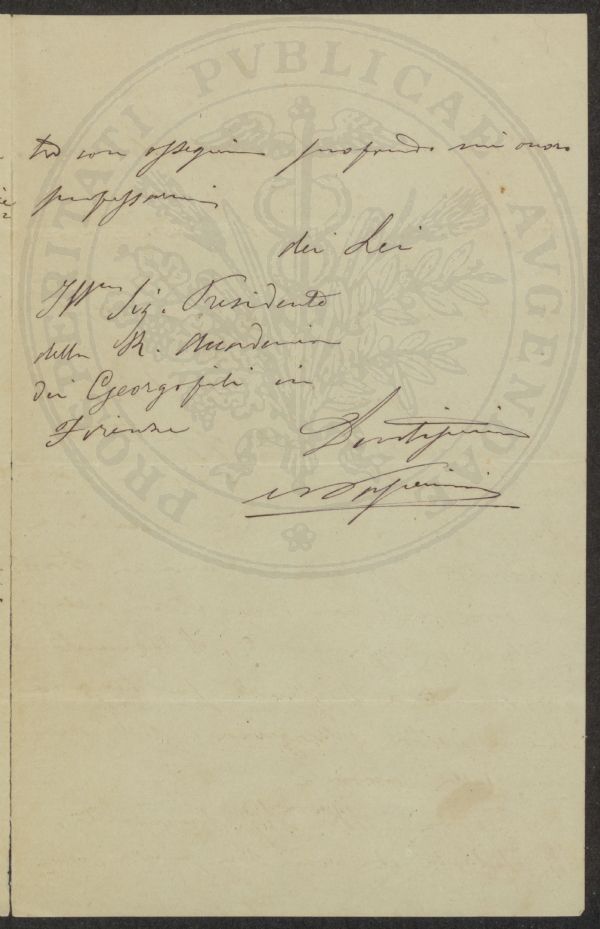 PROSPERITATI PVBLICAE AVGENDAE
tre con ossequio profondo mi onoro
professarmi
di Lei
Ill.mo Sig. Presidente
della R. Accademia
dei Georgofili in
Firenze